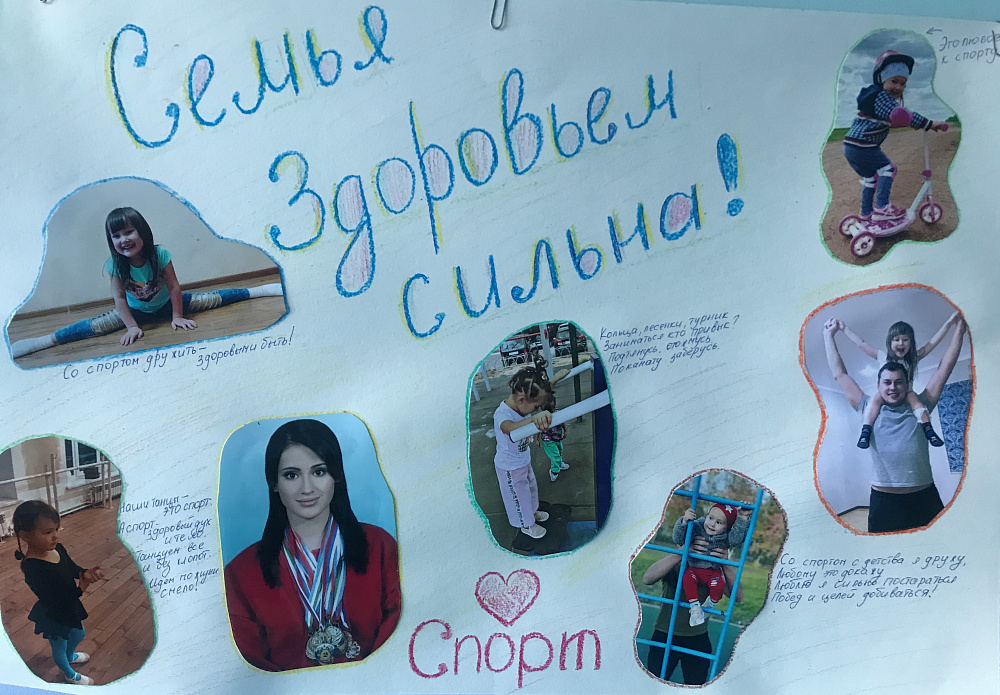 Семья
Здоровьем
сильна!
Это любовь
к спорту
Со спортом дружить –
здоровыми быть!
Кольца, лесенки, турник
Заниматься кто привык?
Подтянусь,
По канату заберусь.
Наши танцы –
это спорт.
А спорт –
здоровый дух
и тело.
Танцуем все
и без
Идем по жизни
смело!
Со спортом с детства я дружу,
Любому это докажу
Люблю я сильно постараться
Побед и целей добиваться!
Спорт